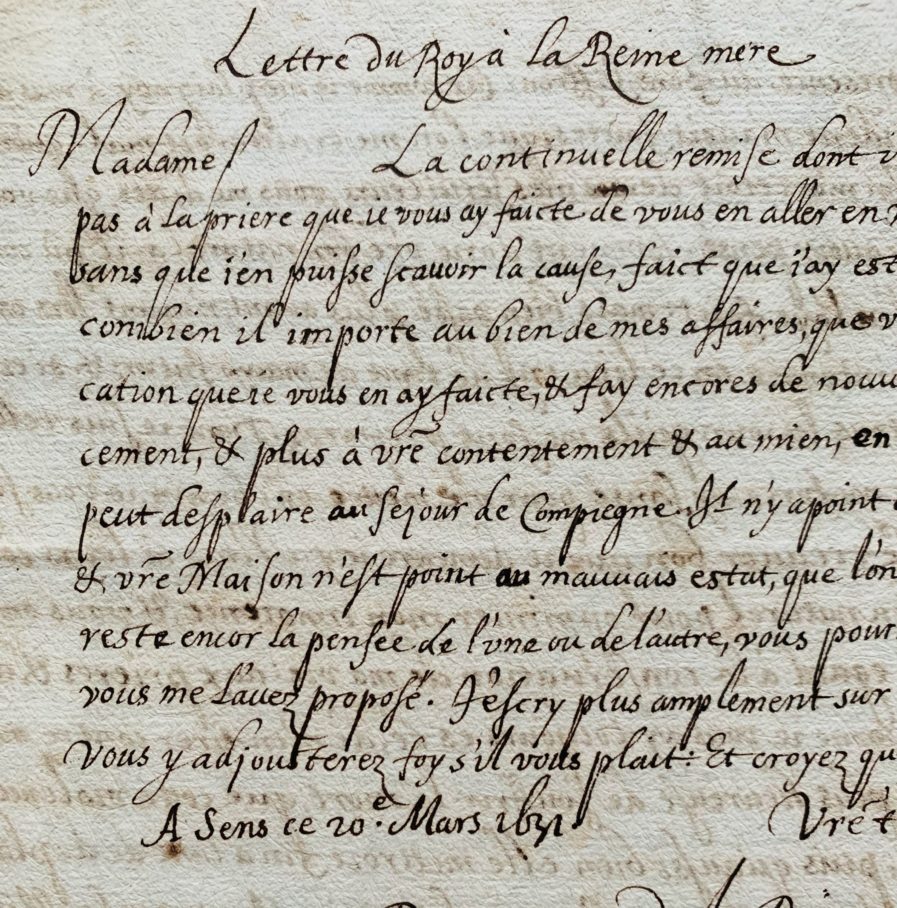 Lettre du Roy à la Reine mere
Madame La continuelle remise dont
pas à la priere que ie vous ay faicte de vous en aller en
sans que i'en puisse scavoir la cause, faict que i'ay est
combien il importe au bien de mes affaires, que v
cation que ie vous en ay faicte, & fay encores de nouv
cement, & plus à vr̃e contentement & au mien, en
peut desplaire au sejour de Compiegne. Il n'y a point
& vr̃e Maison n'est point au mauvais estat, que l'on
reste encor la pensee de l'vne ou de l'autre, vous pour
vous me l'avez proposé. J'escry plus amplement sur
Vous y adjousterez foy s'il vous plait: Et croyez qu
A Sens ce 20.e Mars 1631. Vr̃e t